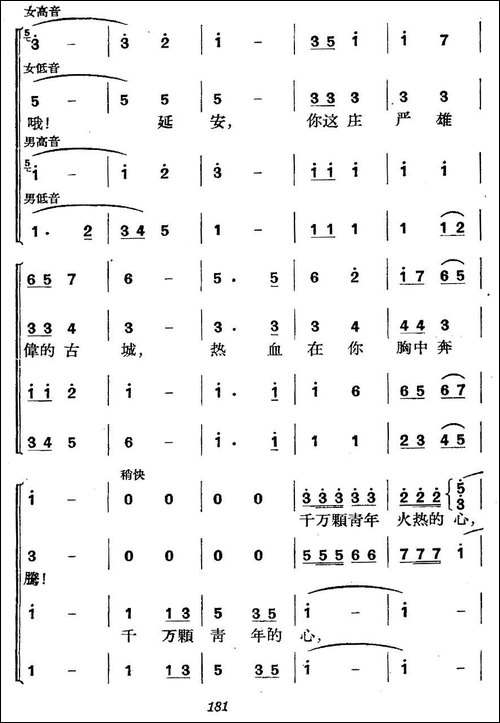 女高音
5 3 - 3 2 1 - 3 5 1 1 7
女低音
5 - 5 5 5 - 3 3 3 3 3
哦! 延 安, 你这 庄 严 雄
男高音
5 1 - 1 2 3 - 1 1 1 1 1
男低音
1 · 2 3 4 5 1 - 1 1 1 1 1 2
6 5 7 6 - 5 · 5 6 2 1 7 6 5
3 3 4 3 - 3 · 3 3 4 4 4 3
偉的 古 城, 热 血 在 你 胸中 奔
1 1 2 1 - 1 · 1 1 6 6 5 6 7
3 4 5 6 - 1 · 1 1 1 2 3 4 5
稍快
1 - 0 0 0 0 3 3 3 3 3 2 2 2 5 3
千万顆青年 火热的 心,
3 - 0 0 0 0 5 5 5 6 6 7 7 7 1
騰!
1 - 1 1 3 5 3 5 1 - 1 -
千 万顆 青 年的 心,
1 - 1 1 3 5 3 5 1 - 1 -
181